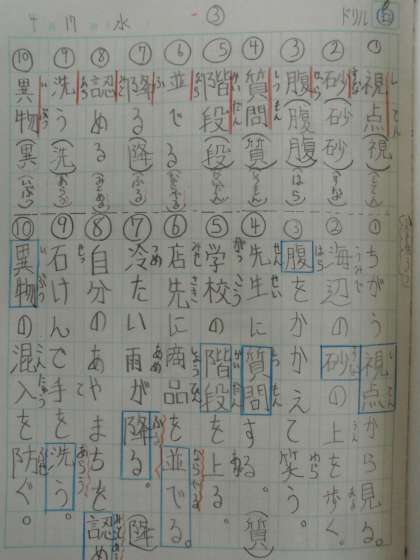 4 17 水 ③ ドリル
① 視点(視)
② 砂(砂)(すな)
③ 腹(腹)(はら)
④ 質問(質)
⑤ 階段(段)
⑥ 並でる
⑦ 降る(降)(ふる)
⑧ 認める
⑨ 洗う(洗)(あらう)
⑩ 異物(異)
① ちがう視点から見る。
② 海辺の砂の上を歩く。
③ 腹をかかえて笑う。
④ 先生に質問する。(質)
⑤ 学校の階段を上る。
⑥ 店先に商品を並でる。
⑦ 冷たい雨が降る。(降)
⑧ 自分のあやまちを認め
⑨ 石けんで手を洗う。
⑩ 異物の混入を防ぐ。